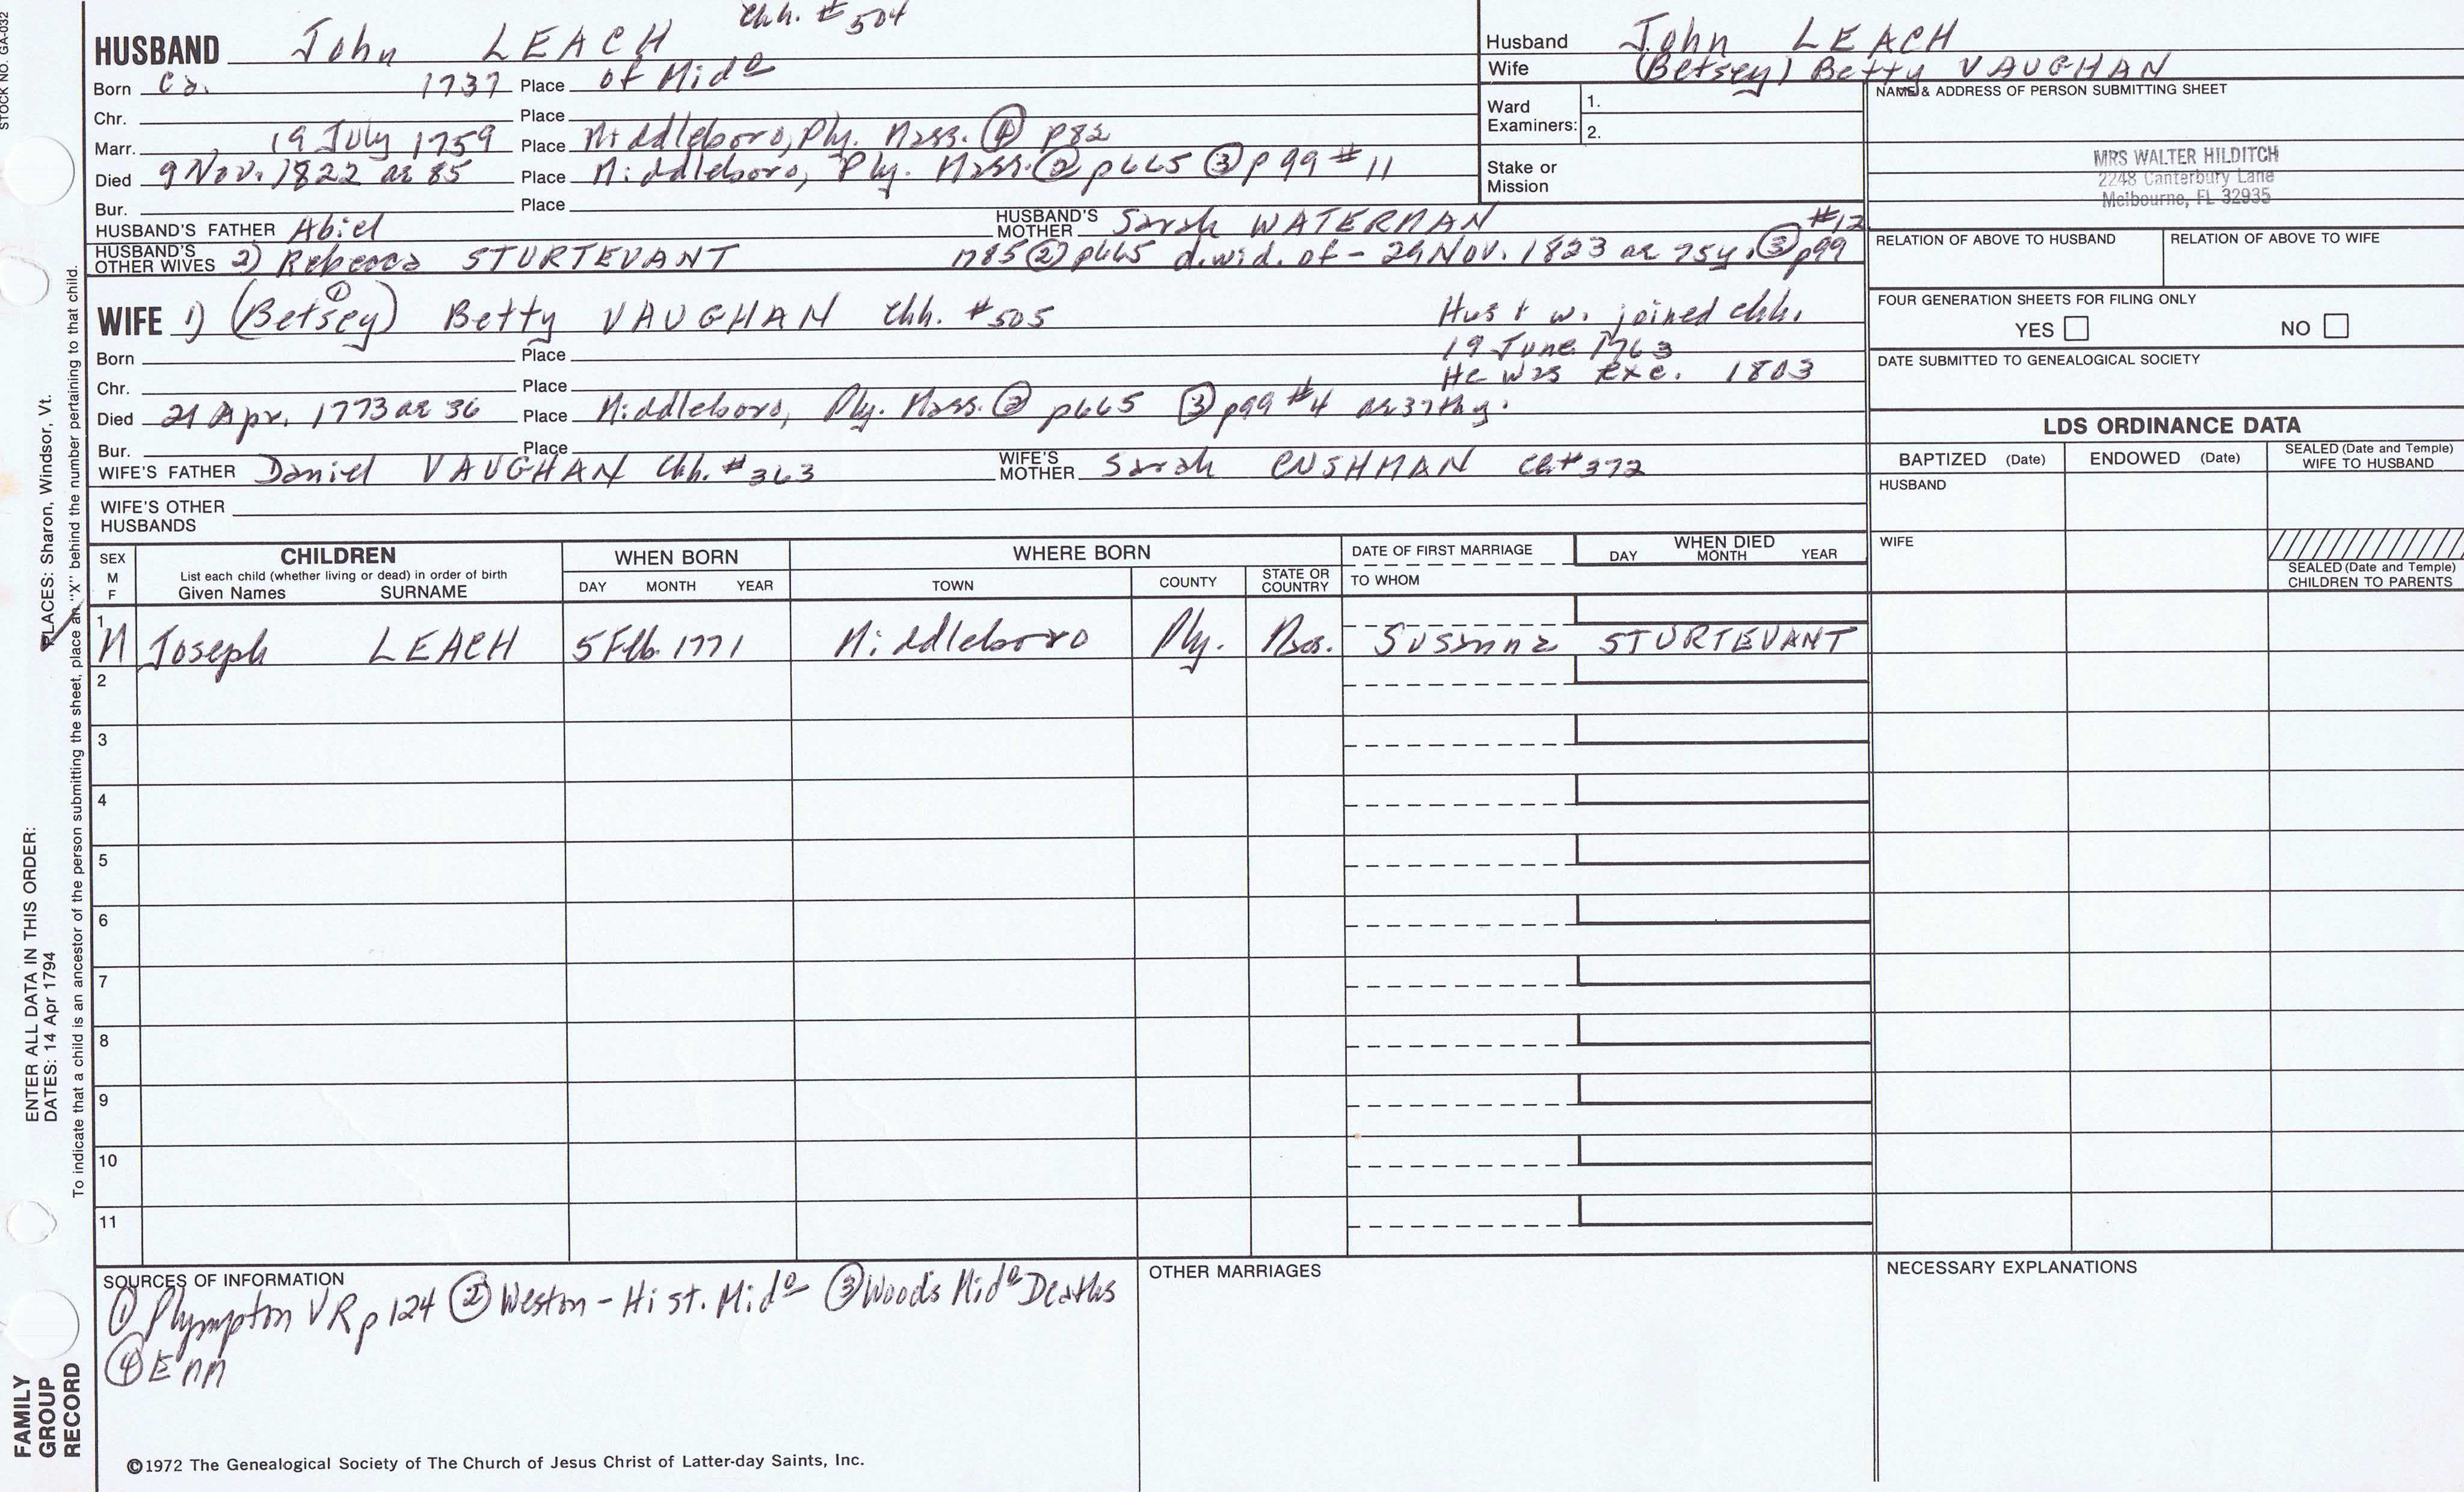 STOCK NO. GA-032
HUSBAND John LEACH Chh. #504
Born ca. 1737 Place of Mid°
Chr. Place
Marr. 19 July 1759 Place Middleboro, Ply. Mass. ④ p82
Died 9 Nov. 1822 ae 85 Place Middleboro, Ply. Mass. ② p665 ③ p99 #11
Bur. Place
HUSBAND'S FATHER Abiel HUSBAND'S MOTHER Sarah WATERMAN
HUSBAND'S OTHER WIVES 2) Rebecca STURTEVANT m85 ② p665 d. wid. of - 29 Nov. 1823 ae 75y. ③ p99 #12
WIFE 1) (Betsey) ① Betty VAUGHAN Chh. #505
Hus & w. joined chh.
19 June 1763
He was exc. 1803
Born Place
Chr. Place
Died 21 Apr. 1773 ae 36 Place Middleboro, Ply. Mass. ② p665 ③ p99 #4 ae 37th y.
Bur. Place
WIFE'S FATHER Daniel VAUGHAN Chh. #363 WIFE'S MOTHER Sarah CUSHMAN Ch #372
WIFE'S OTHER HUSBANDS
Husband John LEACH
Wife (Betsey) Betty VAUGHAN
Ward Examiners: 1.
2.
Stake or Mission
NAME & ADDRESS OF PERSON SUBMITTING SHEET
MRS WALTER HILDITCH
2248 Canterbury Lane
Melbourne, FL 32935
RELATION OF ABOVE TO HUSBAND RELATION OF ABOVE TO WIFE
FOUR GENERATION SHEETS FOR FILING ONLY
YES NO
DATE SUBMITTED TO GENEALOGICAL SOCIETY
LDS ORDINANCE DATA
BAPTIZED (Date) ENDOWED (Date) SEALED (Date and Temple) WIFE TO HUSBAND
HUSBAND
WIFE
SEALED (Date and Temple) CHILDREN TO PARENTS
SEX M F
CHILDREN
List each child (whether living or dead) in order of birth
Given Names SURNAME
WHEN BORN
DAY MONTH YEAR
WHERE BORN
TOWN COUNTY STATE OR COUNTRY
DATE OF FIRST MARRIAGE
TO WHOM
WHEN DIED
DAY MONTH YEAR
1 M Joseph LEACH 5 Feb. 1771 Middleboro Ply. Mas. Susanna STURTEVANT
2
3
4
5
6
7
8
9
10
11
SOURCES OF INFORMATION
① Plympton VR p124 ② Weston - Hist. Mid° ③ Woods Mid° Deaths
④ EMM
OTHER MARRIAGES
NECESSARY EXPLANATIONS
©1972 The Genealogical Society of The Church of Jesus Christ of Latter-day Saints, Inc.
FAMILY GROUP RECORD
ENTER ALL DATA IN THIS ORDER:
DATES: 14 Apr 1794
PLACES: Sharon, Windsor, Vt.
To indicate that a child is an ancestor of the person submitting the sheet, place an "X" behind the number pertaining to that child.